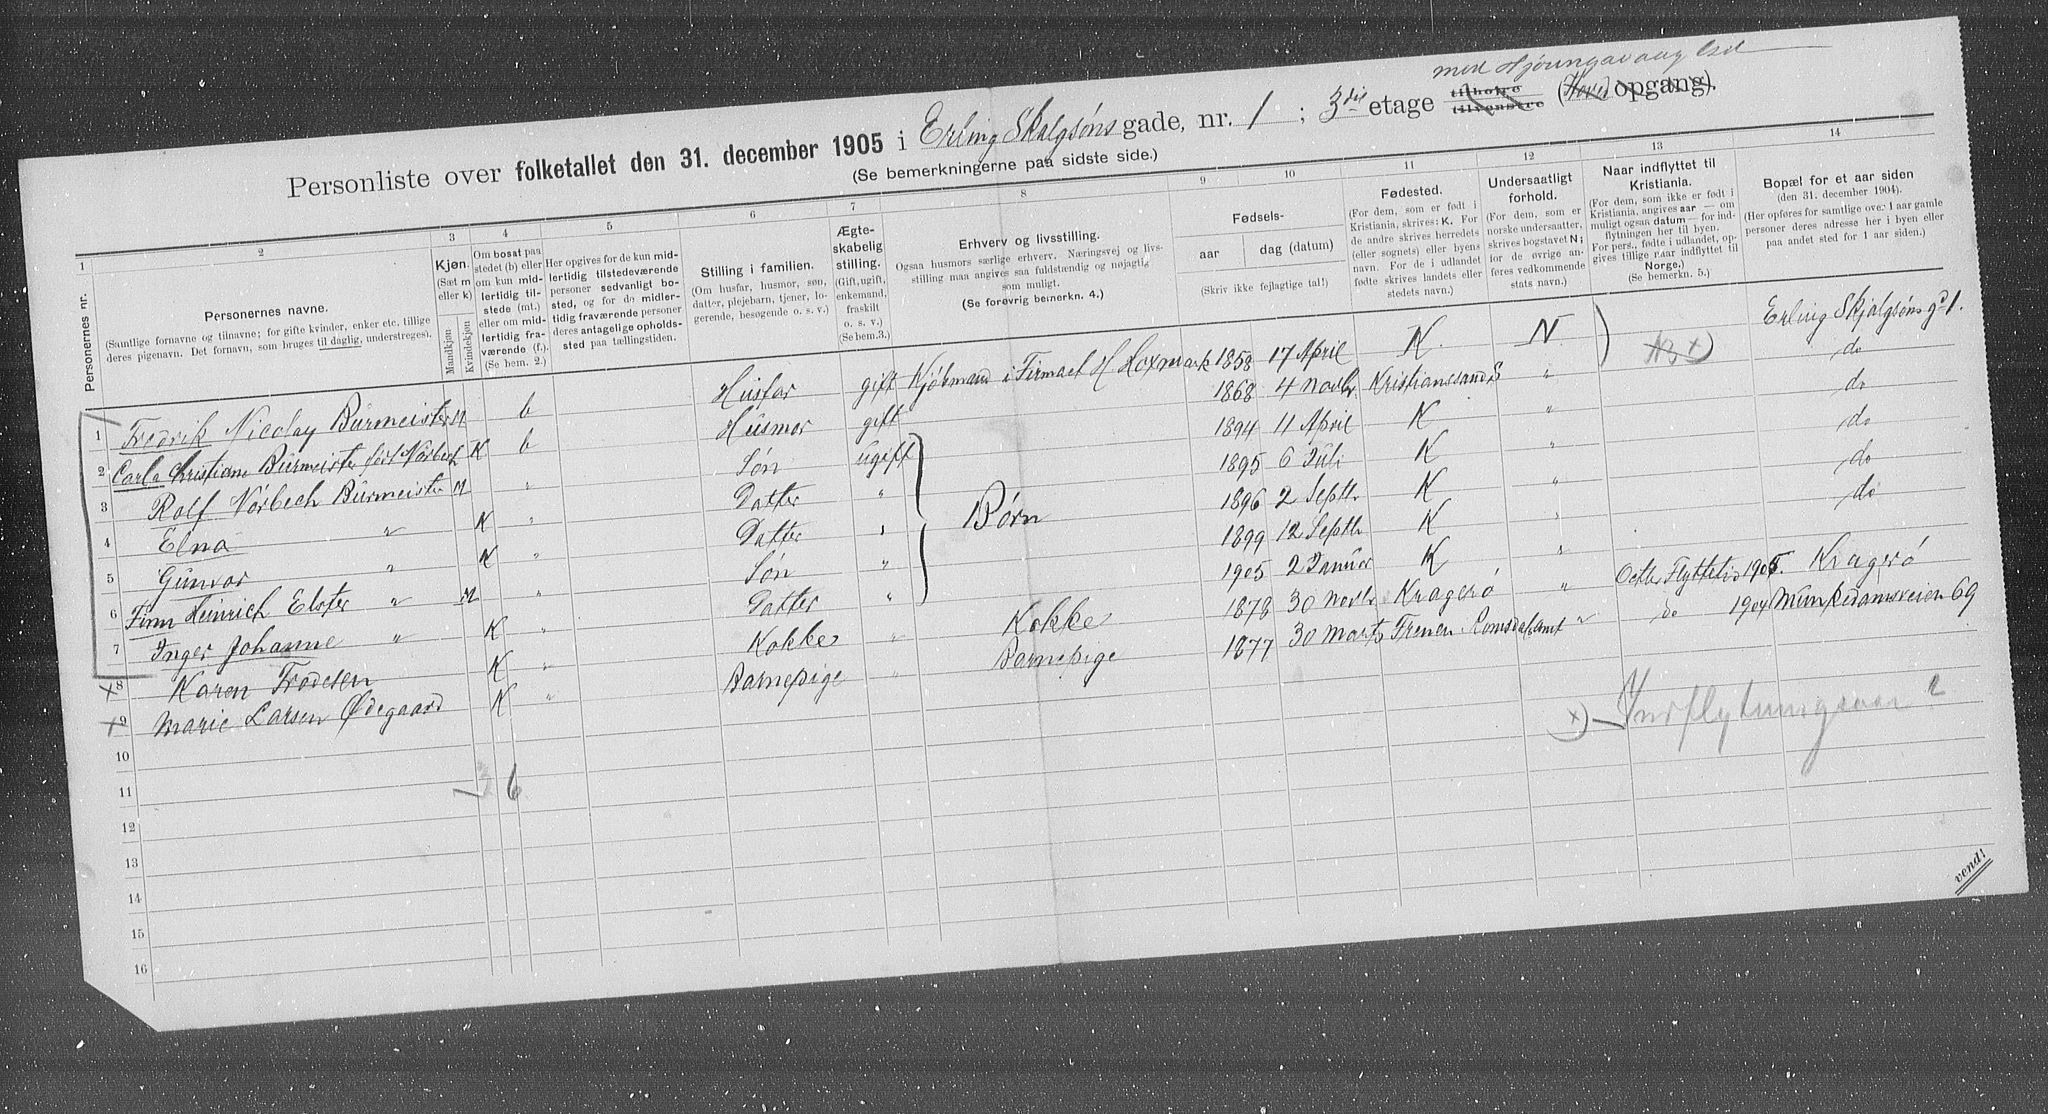 med Hjørungavaag
Personliste over folketallet den 31. december 1905 i Erling Skalgsøns gade, nr. 1 ; 3die etage tilhøire tilvenstre (Hoved opgang).
(Se bemerkningerne paa sidste side.)
1 2 3 4 5 6 7 8 9 10 11 12 13 14
Personernes nr.
Personernes navne.
(Samtlige fornavne og tilnavne; for gifte kvinder, enker etc. tillige
deres pigenavn. Det fornavn, som bruges til daglig, understreges).
Kjøn.
(Sæt m
eller k)
Mandkjøn
Kvindekjøn
Om bosat paa
stedet (b) eller
om kun mid-
lertidig til-
stede (mt.)
eller om mid-
lertidig fra-
værende (f.).
(Se bem. 2.)
Her opgives for de kun mid-
lertidig tilstedeværende
personer sedvanligt bo-
sted, og for de midler-
tidig fraværende personer
deres antagelige opholds-
sted paa tællingstiden.
Stilling i familien.
(Om husfar, husmor, søn,
datter, plejebarn, tjener, lo-
gerende, besøgende o. s. v.)
Ægte-
skabelig
stilling.
(Gift, ugift,
enkemand,
fraskilt
o. s. v.)
(Se bem.3.)
Erhverv og livsstilling.
Ogsaa husmors særlige erhverv. Næringsvej og livs-
stilling maa angives saa fuldstændig og nøjagtig
som muligt.
(Se forøvrig bemerkn. 4.)
Fødsels-
aar
dag (datum)
(Skriv ikke fejlagtige tal!)
Fødested.
(For dem, som er født i
Kristiania, skrives: K. For
de andre skrives herredets
(eller sognets) eller byens
navn. For de i udlandet
fødte skrives landets eller
stedets navn.)
Undersaatligt
forhold.
(For dem, som er
norske undersaatter,
skrives bogstavet N;
for de øvrige an-
føres vedkommende
stats navn.)
Naar indflyttet til
Kristiania.
(For dem, som ikke er født i
Kristiania, angives aar — om
muligt ogsaa datum — for ind-
flytningen her til byen.
For pers., fødte i udlandet, op-
gives tillige naar indflyttet til
Norge.)
(Se bemerkn. 5.)
Bopæl for et aar siden
(den 31. december 1904).
(Her opføres for samtlige over 1 aar gamle
personer deres adresse her i byen eller
paa andet sted for 1 aar siden.)
1 Fredrik Nicolay Burmeister M b Husfar gift Kjøbmand i Firmaet H Hoxmark 1858 17 April K. N. Erling Skjalgsøns gd 1.
2 Carla Christiane Burmeister født Nørbech K b Husmor gift 1868 4 Novbr Kristianssand S " do
3 Rolf Nørbech Burmeister M " Søn ugift 1894 11 April K " do
4 Elna " K " Datter " Børn 1895 6 Juli K " do
5 Gunvor " K " Datter " 1896 2 Septbr K " do
6 Finn Heinrich Elster " M " Søn " 1899 12 Septbr K " do
7 Inger Johanne " K " Datter " 1905 2 Januar K "
8 Karen Frodesen K " Kokke " Kokke 1878 30 Novbr Kragerø " Octbr Flyttetid 1905. Kragerø
9 Marie Larsen Ødegaard K " Barnepige " Barnepige 1877 30 Marts Frenen Romsdals amt " do 1904 Munkedamsveien 69
x) Indflytningsaar ?
10
11 3 6
12
13
14
15
16
vend!